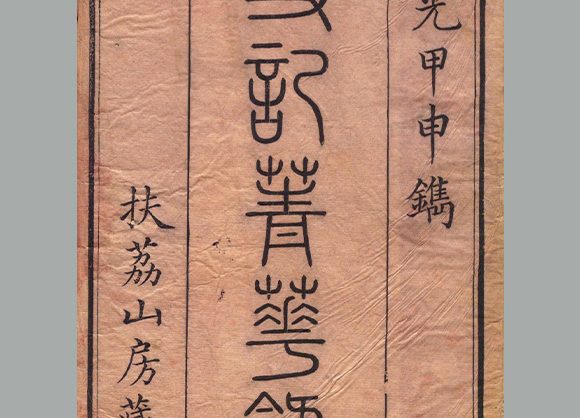 光甲申鐫
記菁華
扶荔山房藏